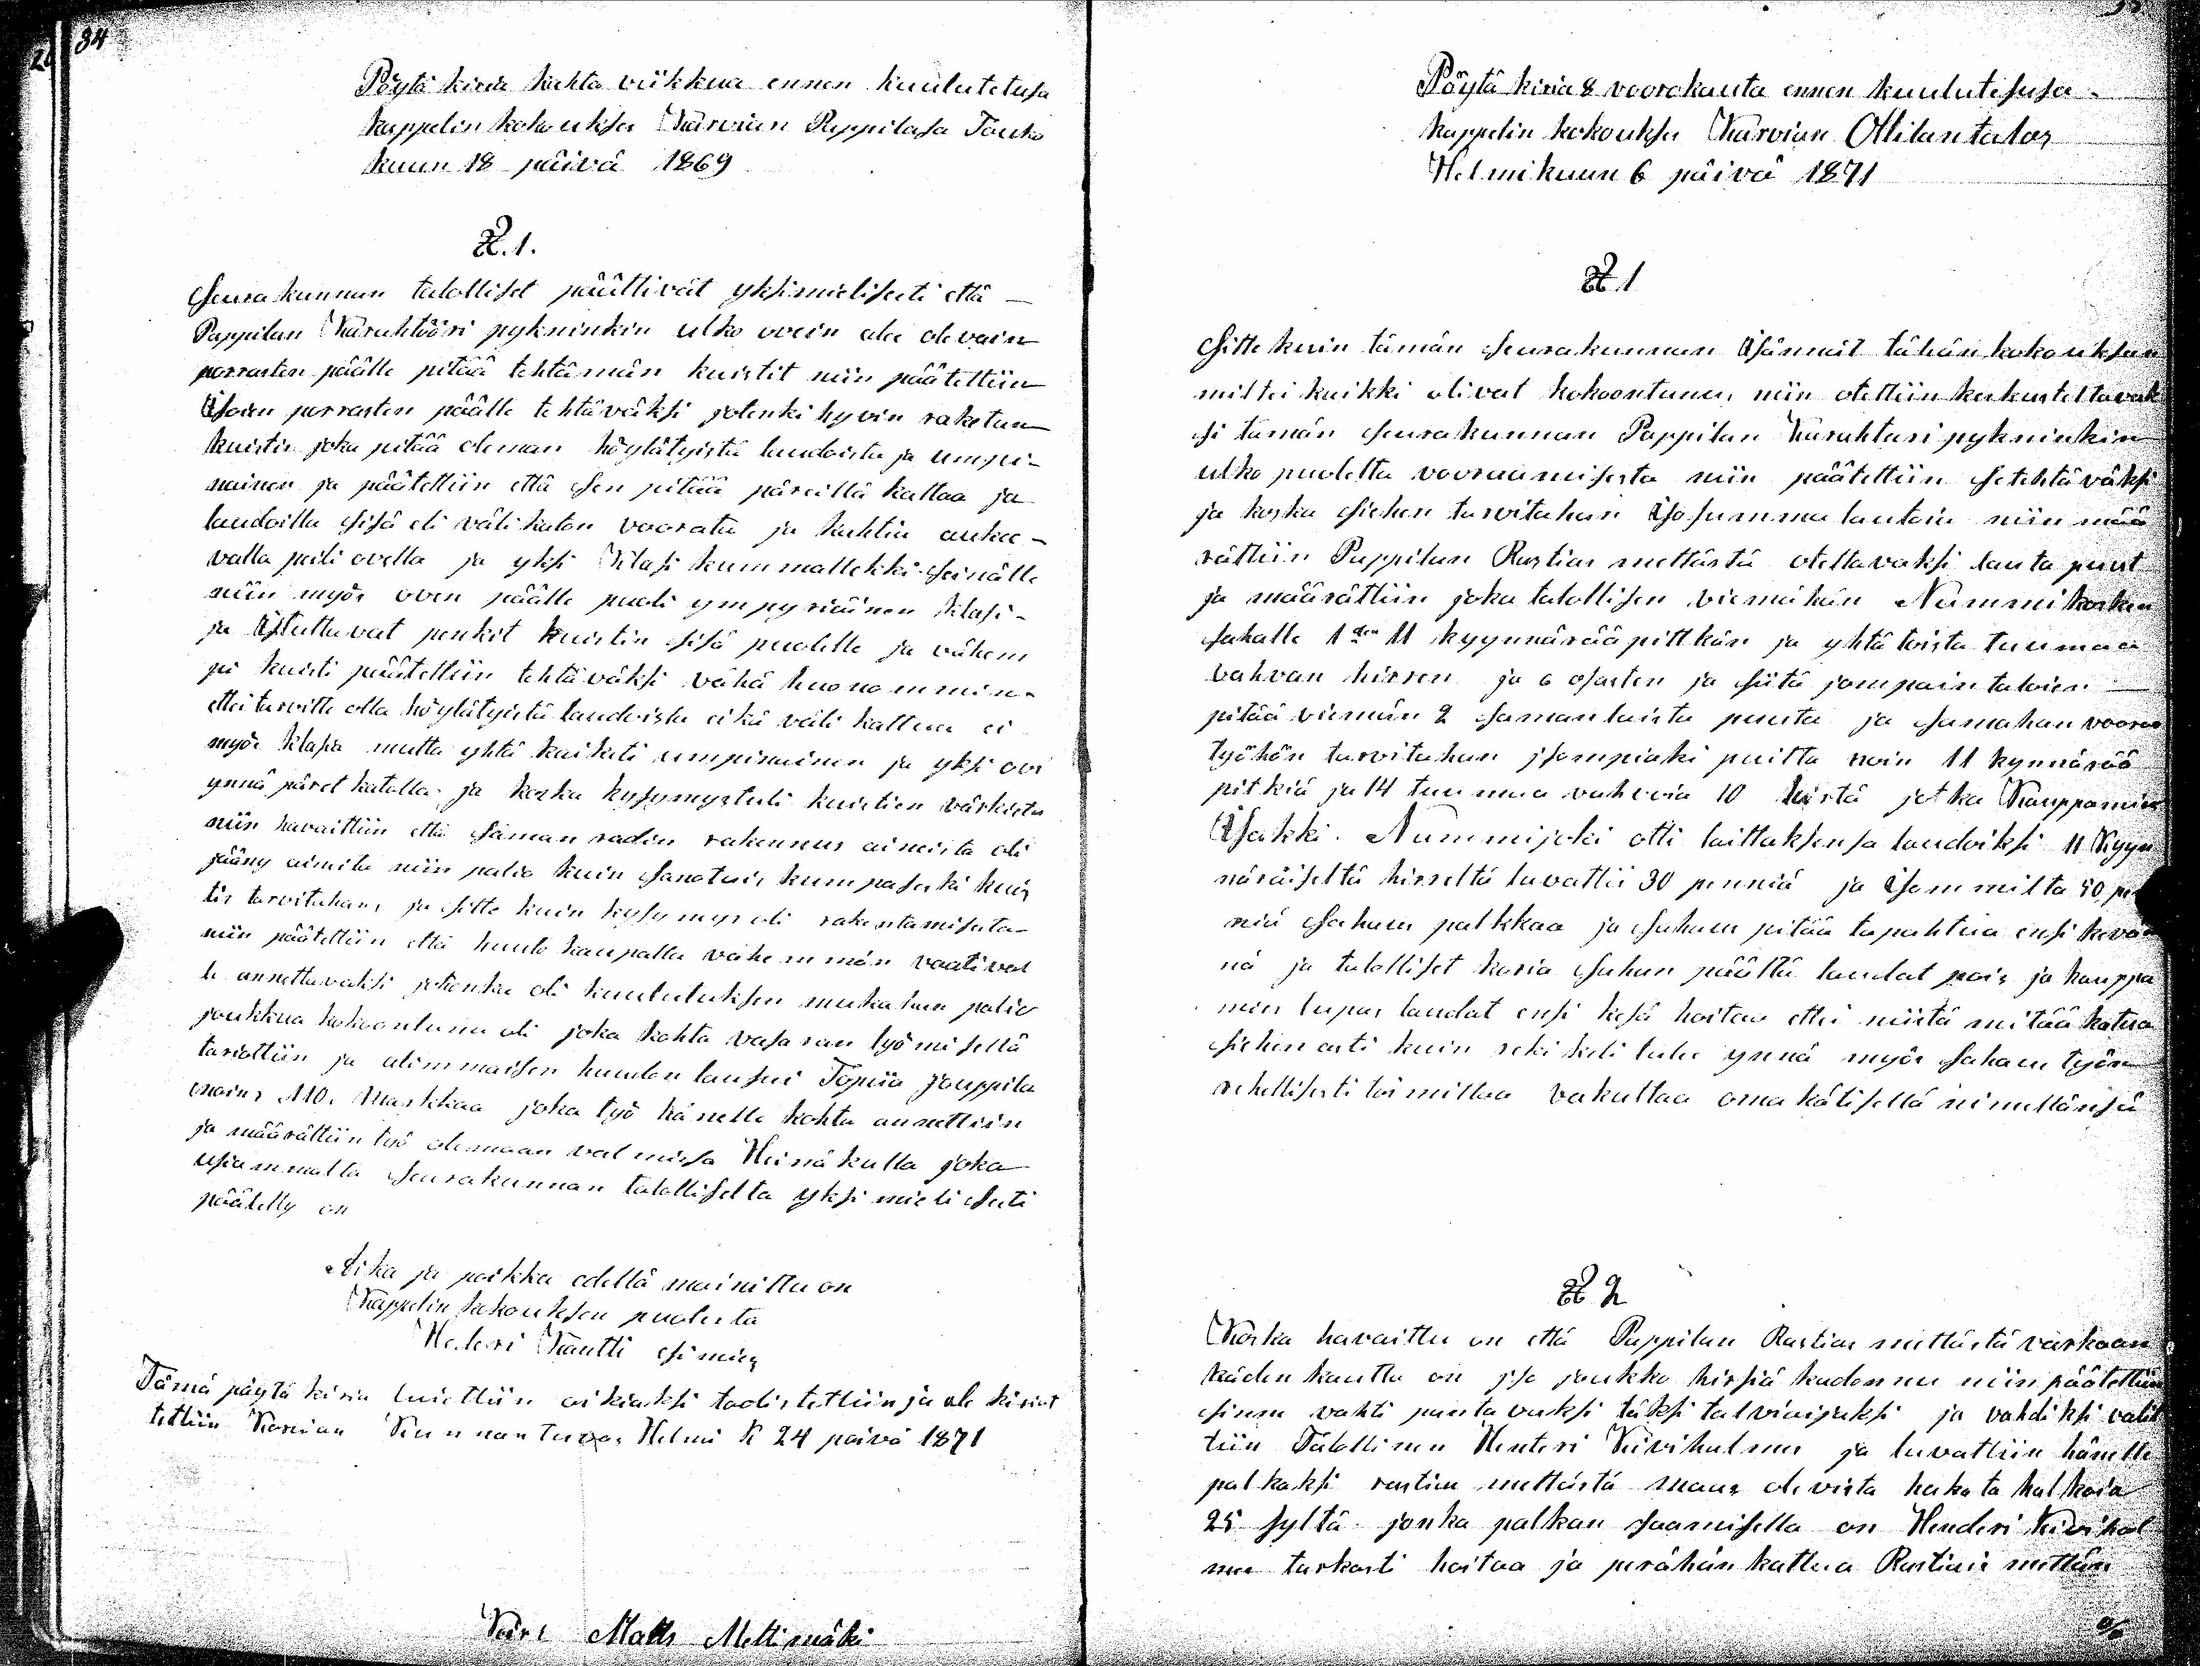 34
Pöytä kiria kahta viikkua ennen kuulutetusa
kappelin kokouksa Karvian Pappilasa Touko
kuun 18 päivä 1869
§. 1.
Seurakunnan talolliset päättivät yksimielisesti että
Pappilan Karahtööri pykninkin ulko ovein ala olevain
porrasten päälle pitää tehtämän kuistit niin päätettiin
Isoin porrasten päälle tehtäväksi jotenki hyvin raketun
kuistin joka pitää oleman höylätyistä laudoista ja umpi-
nainen ja päätettiin että sen pitää päreillä kattaa ja
laudoilla sisä eli väli katon voorata ja kahtia aukia-
valla peili ovella ja yksi klasi kummallekki seinälle
niin myös oven päälle puoli ympyriäinen klasi-
ja Istuttavat penkit kuistin sisä puolelle ja vähem
pi kuisti päätettiin tehtäväksi vähä huonommin-
ettei tarvitte olla höylätyistä laudoista eikä väli kattua ei
myös klasia mutta yhtä kaikiti umpinainen ja yksi ovi
ynnä päret katolla ja koska kysymys tuli kuistien värkistä
niin havaittiin että saman radin rakennus aineista oli
jääny aineita niin palio kuin sanotuis kumpasaski kuis
tis tarvitahan, ja sitte kuin kysymys oli rakentamisesta
niin päätettiin että huuto kaupalla vähemmän vaatival
le annettavaksi jotenka oli kuulutuksen mukahan palio
joukkua kokoontunu oli joka kohta vasaran lyömisellä
tariottiin ja alimmaisen huudon lausui Topiia Jouppila
110. Markkaa joka työ hänelle kohta annettiin
ja määrättiin työ olemaan valmissa Heinäkulla joka
usiammalta Seurakunnan talolliselta yksi mielisesti
päätetty on
Aika ja paikka edellä mainittu on
Kappelin kokouksen puolesta
Hederi Kantti esimies
Tämä pöytä kiria luettiin oikiaksi todistettiin ja ale kirioit
tettiin Karvian Kunnan tuvas Helmi K 24 päivä 1871
Matts Mettimäki
Pöytä kiria 8 voorokauta ennen kuulutesusa
kappelin kokouksa Karvian Ollilan talos
Helmikuun 6 päivä 1871
§ 1
Sitte kuin tämän Seurakunnan Isännät tähän kokouksen
miltei kaikki olivat kokoontunu, niin otettiin keskusteltavak
si tämän seurakunnan Pappilan Karahtari pykninkin
ulko puolelta vooraamisesta niin päätettiin se tehtäväksi
ja koska siehen tarvitahan Iso summa lautoia niin mää
rättiin Pappilan Rastias mettästä otettavaksi lauta puut
ja määrättiin joka talollisen viemähän Nummikosken
sahalle 1 11 kyynnärää pittkän ja yhtä toista tuumaa
vahvan hirren ja 6 osasten ja siitä jompain taloien
pitää viemän 2 samanlaista puuta ja samahan vooraa
työhön tarvitahan isompiaki puilta noin 11 kynnärää
pitkiä ja 14 tuumaa vahvoia 10 hirstä jotka Kauppamies
Isakki Nummijoki otti laittaksensa laudoiksi 11 Kyyn
näräiseltä hirreltä luvattii 30 penniä ja Isommilta 50 pe
niä Sahaus palkkaa ja Sahaus pitää tapahtua ensi kevän
nä ja talolliset koria Sahan päältä laudat pois ja kauppa
mies lupas laudat ensi kesä hoitaa ettei niistä mitää katua
siehen asti kuin reki keli tulee ynnä myös Sahaus työn
rehellisesti toimittaa vakuttaa oma kätisellä nimellänsä
§ 2
Koska havaittu on että Pappilan Rastias mettästä varkaan
käden kautta on iso joukko hirsiä kadonnu niin päätettiin
sinne vahti pantavaksi täksi talviaijaksi ja vahdiksi valit
tiin Talollinen Henteri Kivihalme ja luvattiin hänelle
palkaksi rastian mettästä maas olevista hakata halkoia
25 syltä jonka palkan saamisella on Henderi Kivihal
me tarkasti hoitaa ja perähän kattua Rastiais mettän